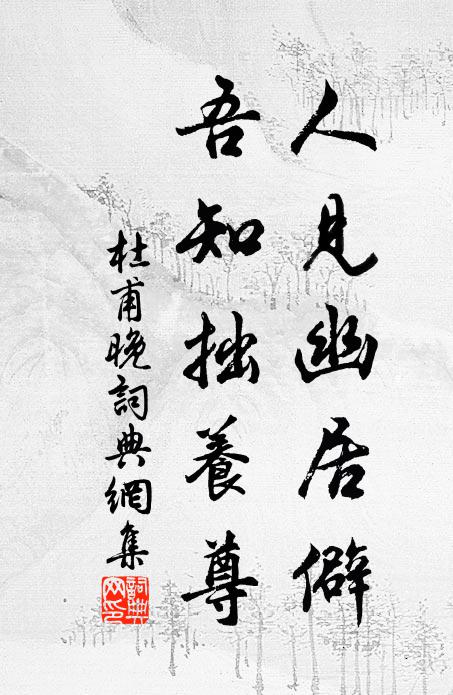 人見幽居僻
吾知拙養尊
杜甫晚詞典網集
詞典网印